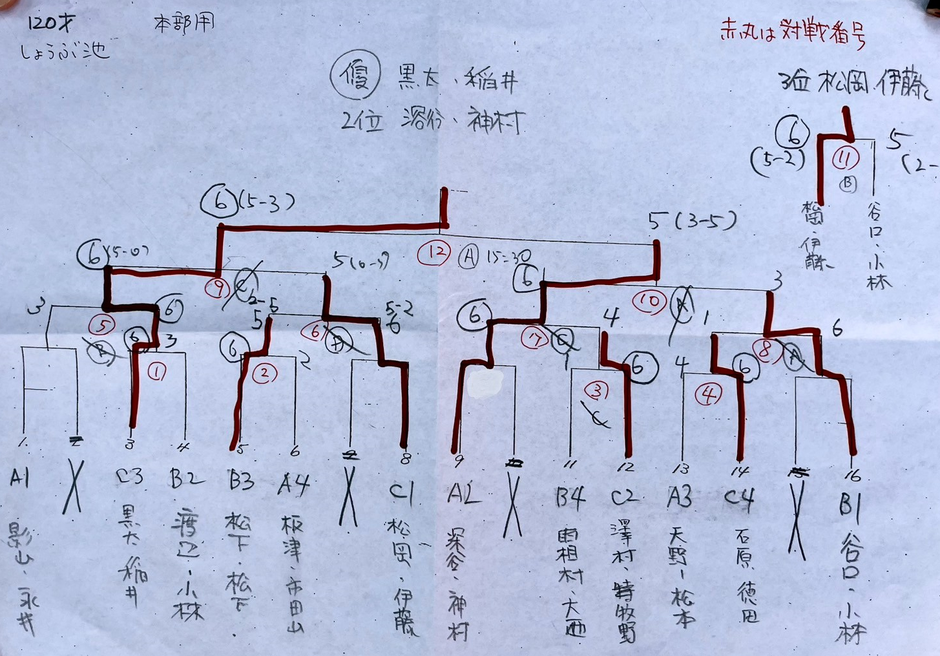 120才 本部用 赤丸は対戦番号
しょうぶ池
優 黒太・稲井
2位 深谷・神村
3位 松岡 伊藤
6 (5-2) 11 B 5 (2-
松岡・伊藤 谷口・小林
6 (5-3) 5 (3-5)
12 A 15:30
6 (5-0) 9 5 6 10 3
3 5 6 6 5-2 6 6 7 4 1 8 A 6
6 1 3 6 2 2 1 3 6 4 4 6
C
1 3 4 5 6 8 9 11 12 13 14 16
A1 C3 B2 B3 A4 C1 A2 B4 C2 A3 C4 B1
影山・永井
黒太 稲井
渡辺・小林
松下・松下
板津・市田山
松岡・伊藤
深谷・神村
雨相村・大西
澤村・特牧野
天野・松本
石原・徳田
谷口・小林